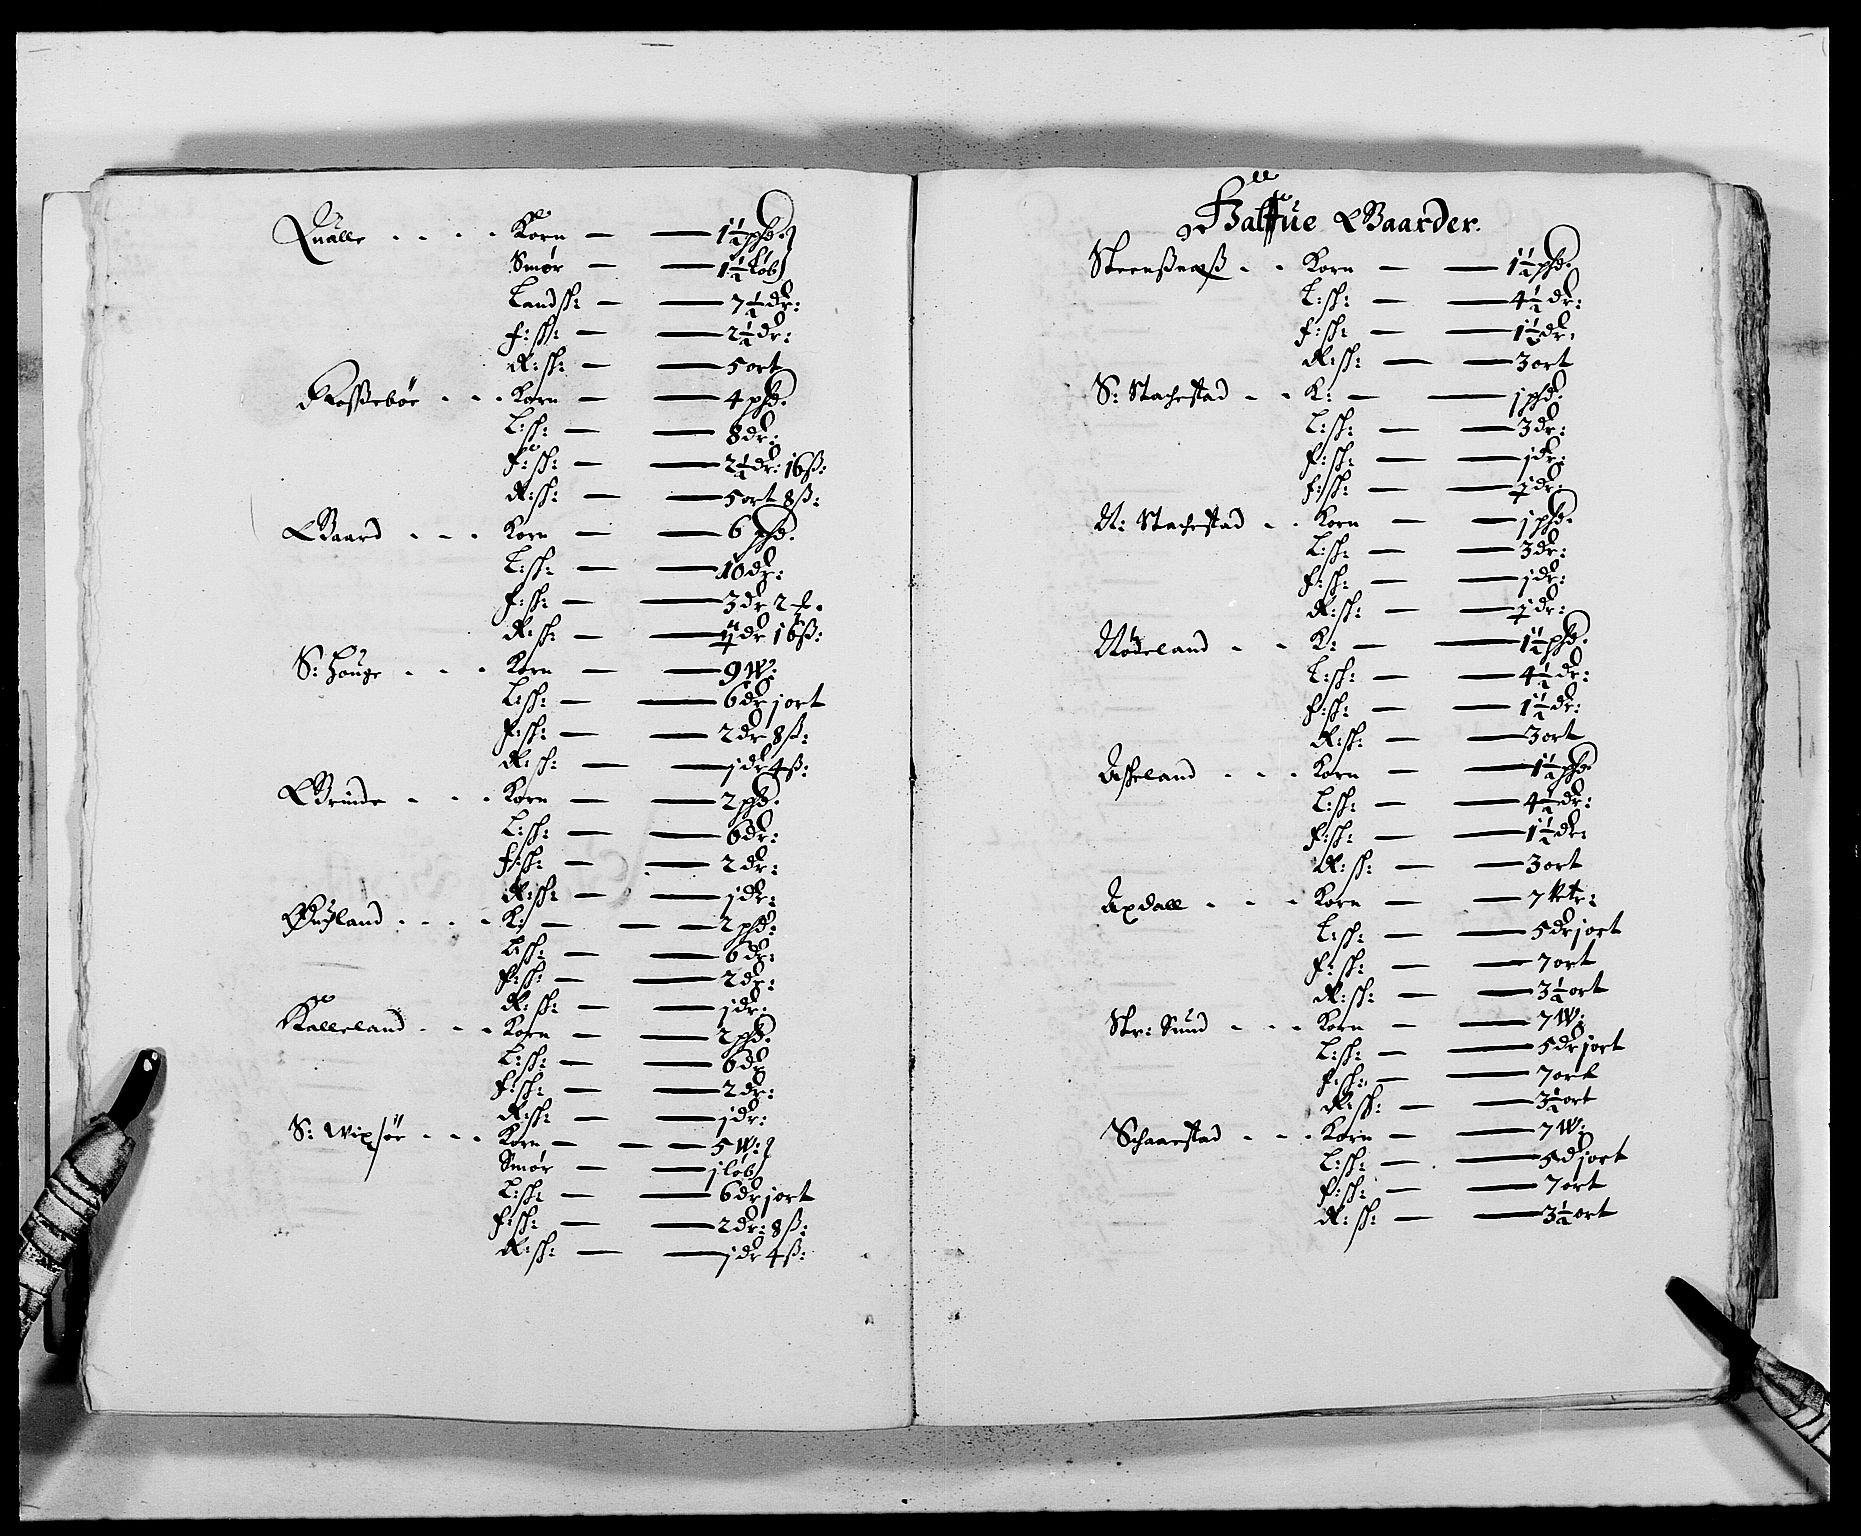 Qualle . . . . Korn — — 1½ phd:
Smør — — 1½ løb
Landsk: — — 7½ dr:
f:sk: — — 2½ dr:
R:sk: — — 5 ort
Fossebøe . . . Korn — — 4 phd.
L:sk: — — 8 dr:
f:sk: — — 2½ dr: 16 ß:
R:sk: — — 5 ort 8 ß:
Waard . . . Korn — — 6 phd.
L:sk: — — 10 dr:
f:sk: — — 3 dr 2
R:sk: — — dr 16 ß:
S: Houge . . . Korn — — 9 W:
L:sk: — — 6 dr j ort
f:sk: — — 2 dr 8 ß:
R:sk: — — j dr 4 ß:
Grinde . . . Korn — — 2 phd.
L:sk: — — 6 dr:
f:sk: — — 2 dr:
R:sk: — — j dr:
. . . . K: — — 2 phd:
L:sk: — — 6 dr:
f:sk: — — 2 dr:
R:sk: — — j dr:
Kalleland . . . Korn — — 2 phd.
L:sk: — — 6 dr
f:sk: — — 2 dr:
R:sk: — — j dr:
S: Wixsør . . . Korn — — 5 W:
Smør — — j løb
L:sk: — — 6 dr j ort
f:sk: — — 2 dr: 8 ß:
R:sk: — — j dr 4 ß:
Halfue Gaarder.
Steensnæß . . Korn — — 1½ phd.
L:sk: — — 4½ dr:
f:sk: — — 1½ dr.
R:sk: — — 3 ort
S: Stachestad . . K: — — j phd.
L:sk: — — 3 dr:
f:sk: — — j dr:
f:sk: — — ½ dr:
N: Stachestad . . Korn — — j phd.
L:sk: — — 3 dr:
f:sk: — — j dr:
R:sk: — — ½ dr:
Nødeland . . K: — — 1½ phd:
L:sk: — — 4½ dr:
f:sk: — — 1½ dr:
R:sk: — — 3 ort
Askeland . . . Korn — — 1½ phd
L:sk: — — 4½ dr:
f:sk: — — 1½ dr:
R:sk: — — 3 ort
Axdall . . . Korn — — 7 Wtr:
L:sk: — — 5 dr j ort
f:sk: — — 7 ort
R:sk: — — 3½ ort
Str: Sund . . . Korn — — 7 W:
L:sk: — — 5 dr j ort
f:sk: — — 7 ort
R:sk: — — 3½ ort
Schaarestad . . . Korn — — 7 W:
L:sk: — — 5 d j ort
f:sk: — — 7 ort
R:sk: — — 3½ ort